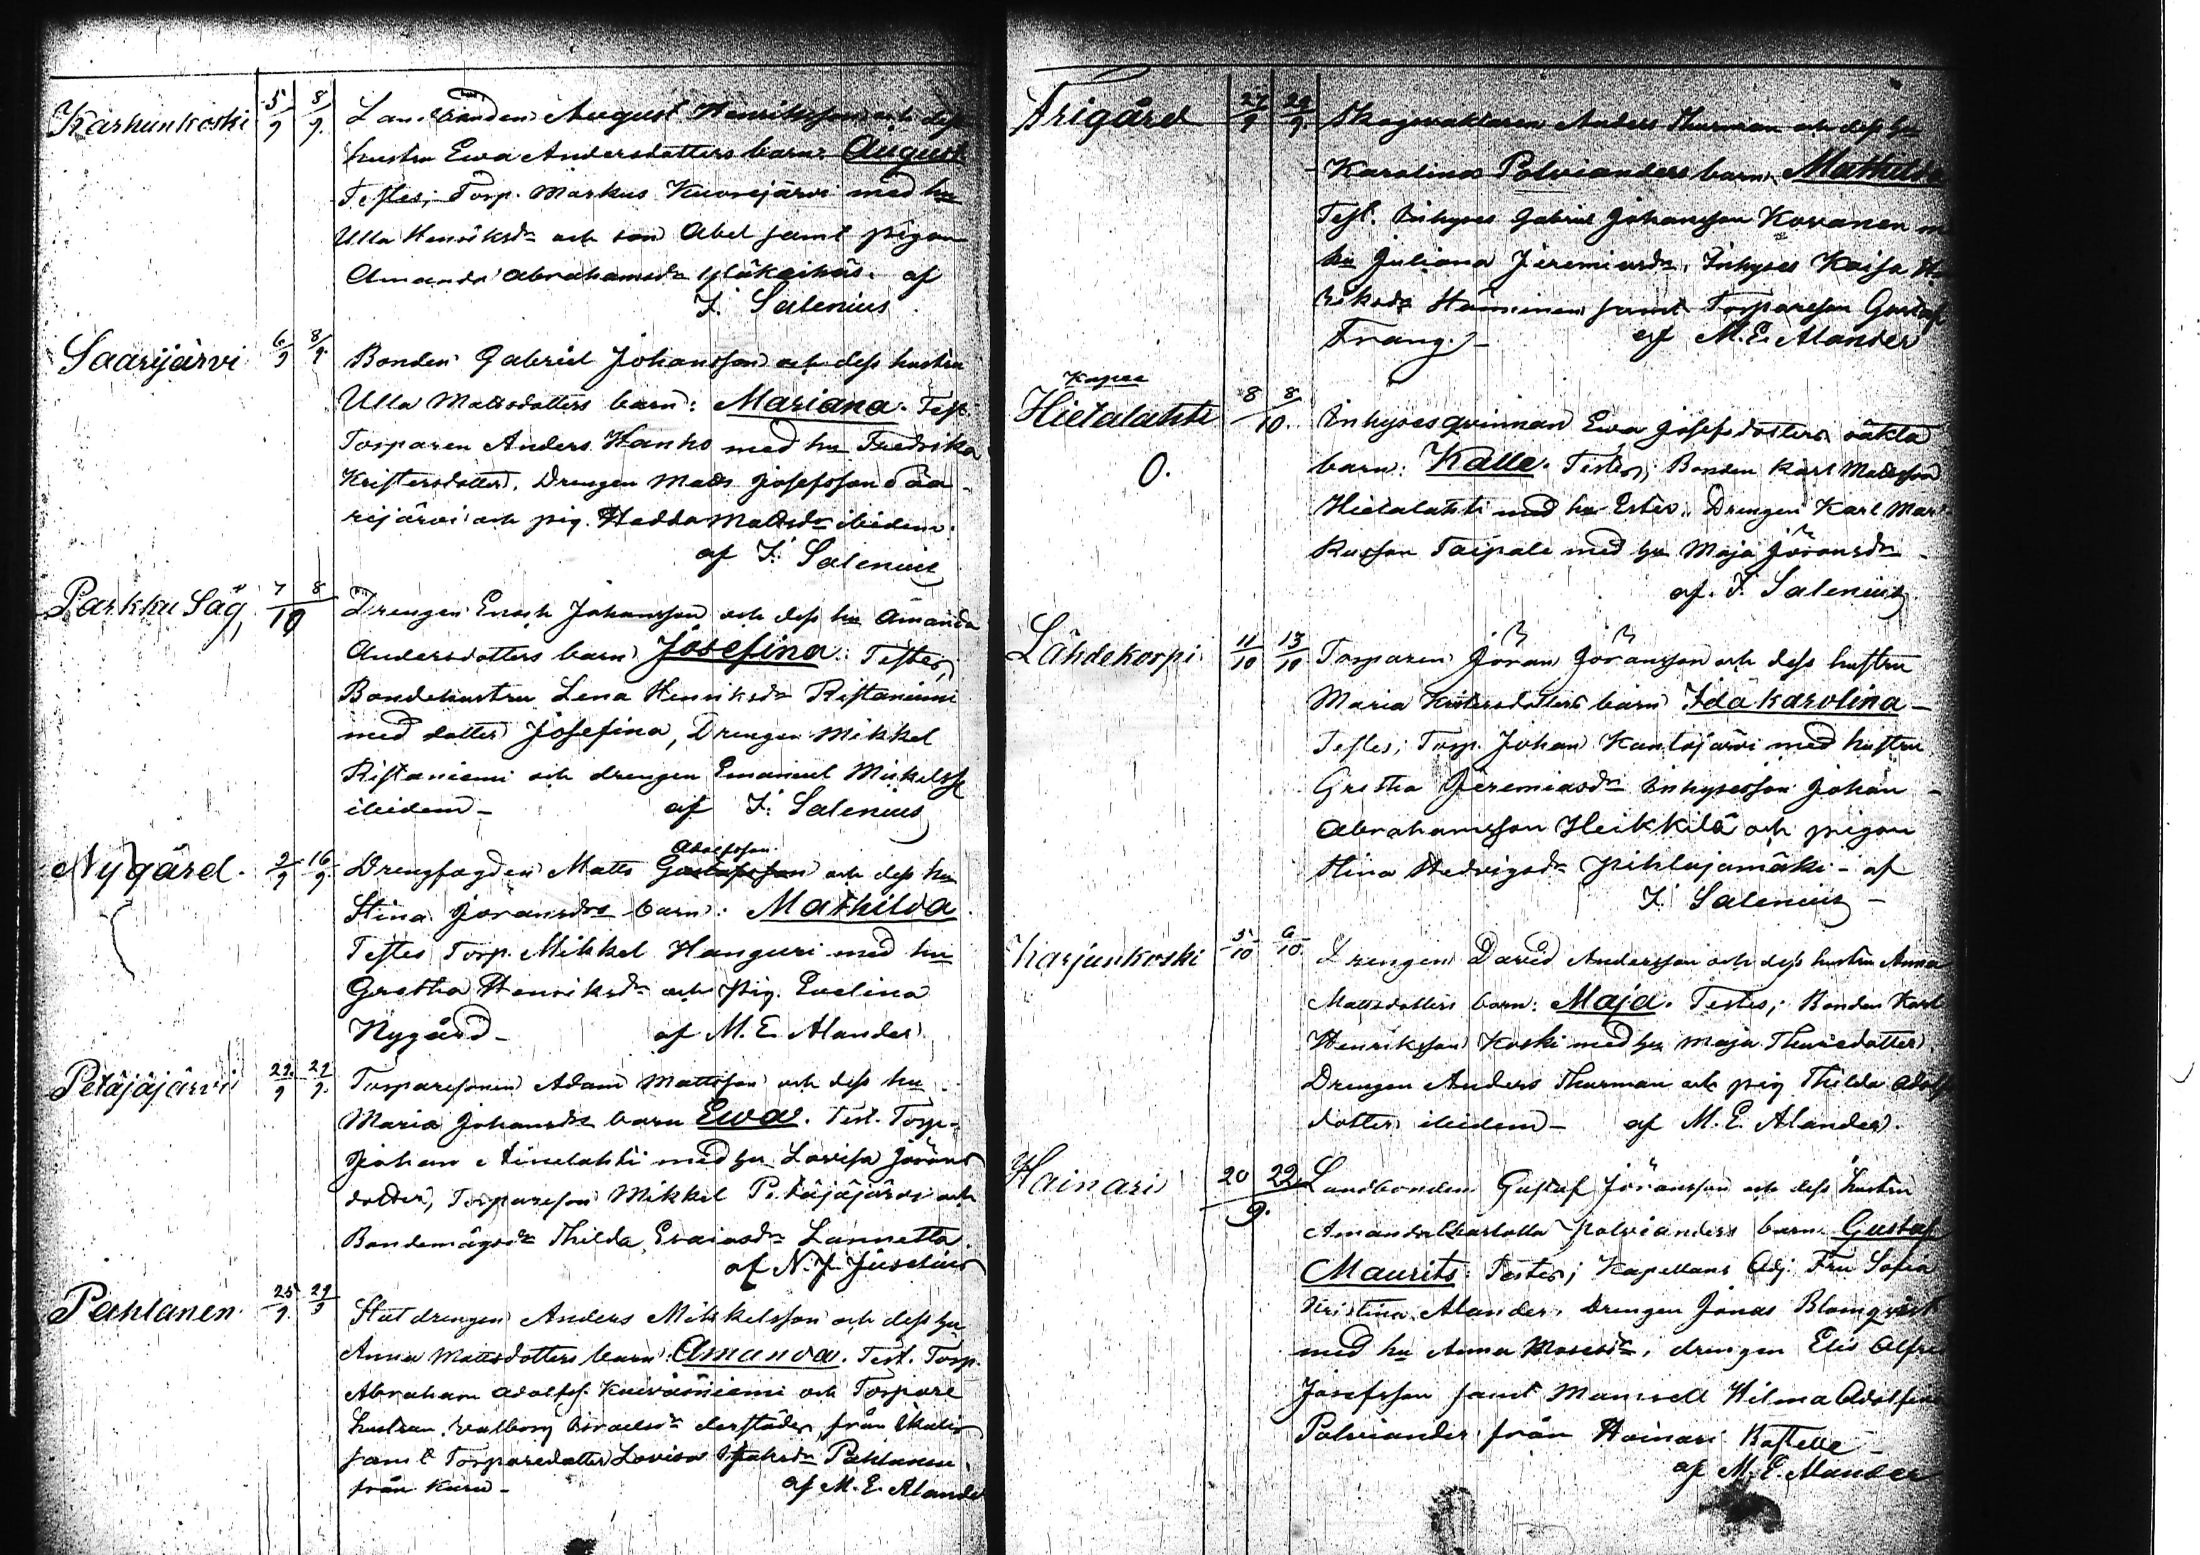 Karhunkoski 5/9 8/9. Landbonden August Henriksson och dess
hustru Ewa Andersdotters barn: August
Testes; Torp. Markus Kuorejärvi med hu
Ulla Henriksdr och son Abel samt pigan
Amanda Abrahamsdr af
F. Salenius
Saarijärvi 6/9 8/9. Bonden Gabriel Johansson och dess hustru
Ulla Mattsdotters barn: Mariana. Test.
Torparen Anders Hanho med hu Fredrika
Kristersdotter. Drengen Matts Josefsson Saa-
rijärvi och pig. Hedda Mattsdr ibidem.
af F. Salenius
Parkku Såg 7 8/10 Drengen Enoch Johansson och dess hu Amanda
Andersdotters barn Josefina. Testes;
Bondehustru Lena Henriksdr Ristaniemi
med dotter Josefina, Drengen Mikkel
Ristaniemi och drengen Emanuel Mickelss
ibidem - af F. Salenius
Adolfsson
Nygård. 2/9 16/9 Drengfogden Matts Gustafsson och dess hu
Stina Joransdrs barn: Mathilda.
Testes Torp. Mikkel Hanguri med hu
Gretha Henriksdr och pig. Evelina
Nygård - af M. E. Alander.
Petäjäjärvi 22/9 29/9. Torparesonen Adam Mattsson och dess hu
Maria Johansdrs barn Ewa. Test. Torp.
Johan med hu Lovisa Jörans
dotter, Torpareson Mikkel Petäjäjärvi och
Bondemågsdr Thilda Esaiasdr Lannetta.
af N. J. Juselius
Pahlanen 25/9. 29/9 Statdrengen Anders Mikkelsson och dess hu
Anna Mattsdotters barn Amanda. Test. Torp.
Abraham Adolfss. och Torpare
hustrun Valborg Israelsdr derstädes från Ikalis
samt Torparedotter Lovisa Pahlanen
från Kuru - af M. E. Alander
Frigård 27/9 29/9. Skogsvaktaren Anders Thurman och dess hu
Karolina Polvianders barn Mathilda
Test. Inhyses Gabriel Johansson Kovanen m
hu Juliana Jeremiasdr. Inhyses Kaisa He
riksdr Hänninen samt Torpareson Gustaf
Frang. - af M. E. Alander
Hietalahti 8 8/10. Inhysesqvinnan Ewa Josefsdotters oäkta
O. barn: Kalle. Testes; Bonden Karl Mattsson
Hietalahti med hu Ester. Drengen Karl Mar-
kusson Taipale med hu Maja Jöransdr -
af. F. Salenius.
Lähdekorpi 11/10 13/10 Torparen Jöran Jöransson och dess hustru
Maria Kristersdotters barn Ida Karolina -
Testes; Torp. Johan Kantojärvi med hustru
Gretha Jeremiasdr Inhyseson Johan -
Abrahamsson Heikkilä och pigan
Stina Hedvigsdr Pihlajamäki - af
F. Salenius -
Karjunkoski 5/10 6/10. Drengen David Andersson och dess hustru Anna
Mattsdotters barn: Maja. Testes; Bonden Karl
Henriksson Koski med hu Maja Thuresdotter
Drengen Anders Thurman och pig Thilda Adolfs
dotter ibidem - af M. E. Alander.
Hainari 20 22/9. Landbonden Gustaf Jöransson och dess hustru
Amanda Charlotta Polvianders barn Gustaf
Maurits. Testes; Kapellans Adj. Fru Sofia
Kristina Alander. Drengen Jonas Blomqvist
med hu Anna Mosesdr, drengen Elis Alfred
Josefsson samt Mamsell Hilma Adolfina
Polviander från Hainari Boställe -
af M. E. Alander